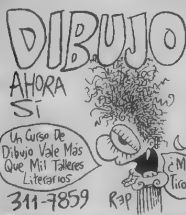 DIBUJO
AHORA
SÍ
Un Curso De
Dibujo Vale Más
Que Mil Talleres
Literarios
311-7859